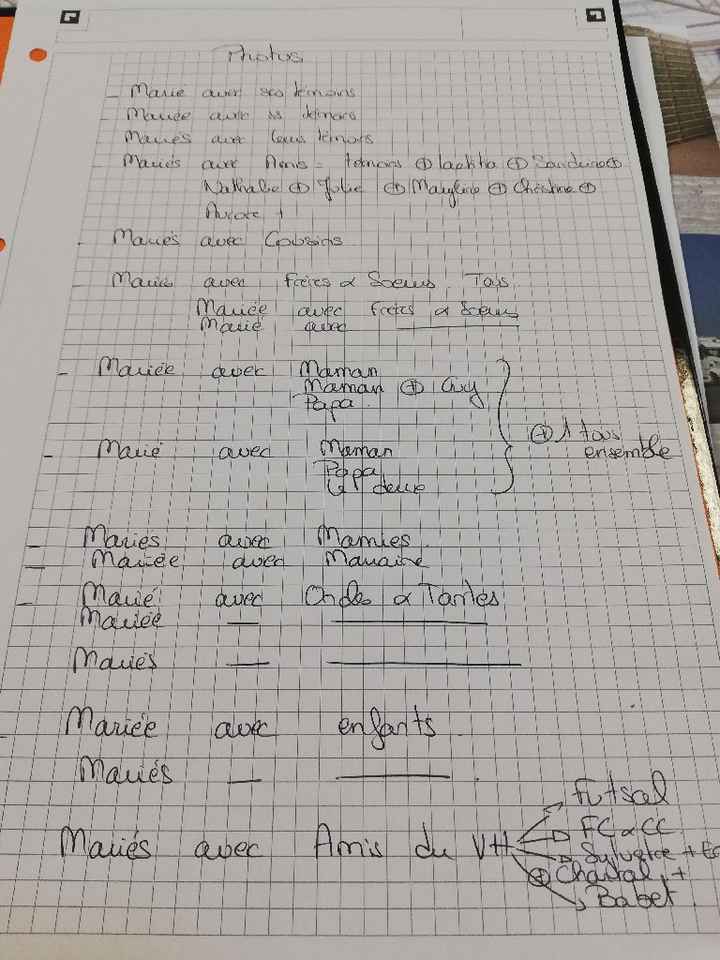 Photos
- Marié avec ses témoins
- Mariée avec ss témoins
- Mariés avec leurs témoins
- Mariés avec Amis = témoins ⊕ laetitia ⊕ Sandrine ⊕
Nathalie ⊕ Julie ⊕ Maryline ⊕ Christine ⊕
Aurore +
- Mariés avec Cousins
- Mariés avec frères & Soeurs
Mariée avec frères & Soeurs
Marié avec ___
- Mariée avec Maman
Maman ⊕ Guy
Papa.
⊕ 1 tous
ensemble
- Marié avec Maman
Papa
Les deux
- Mariés avec Mamies
- Mariée avec Marraine
- Marié avec Oncles & Tantes
Mariée — ___
Mariés — ___
- Mariée avec enfants.
Mariés — ___.
Mariés avec Amis du VH
Futsal
FC & CC
Sylvestre +
⊕ Chantal +
Babet